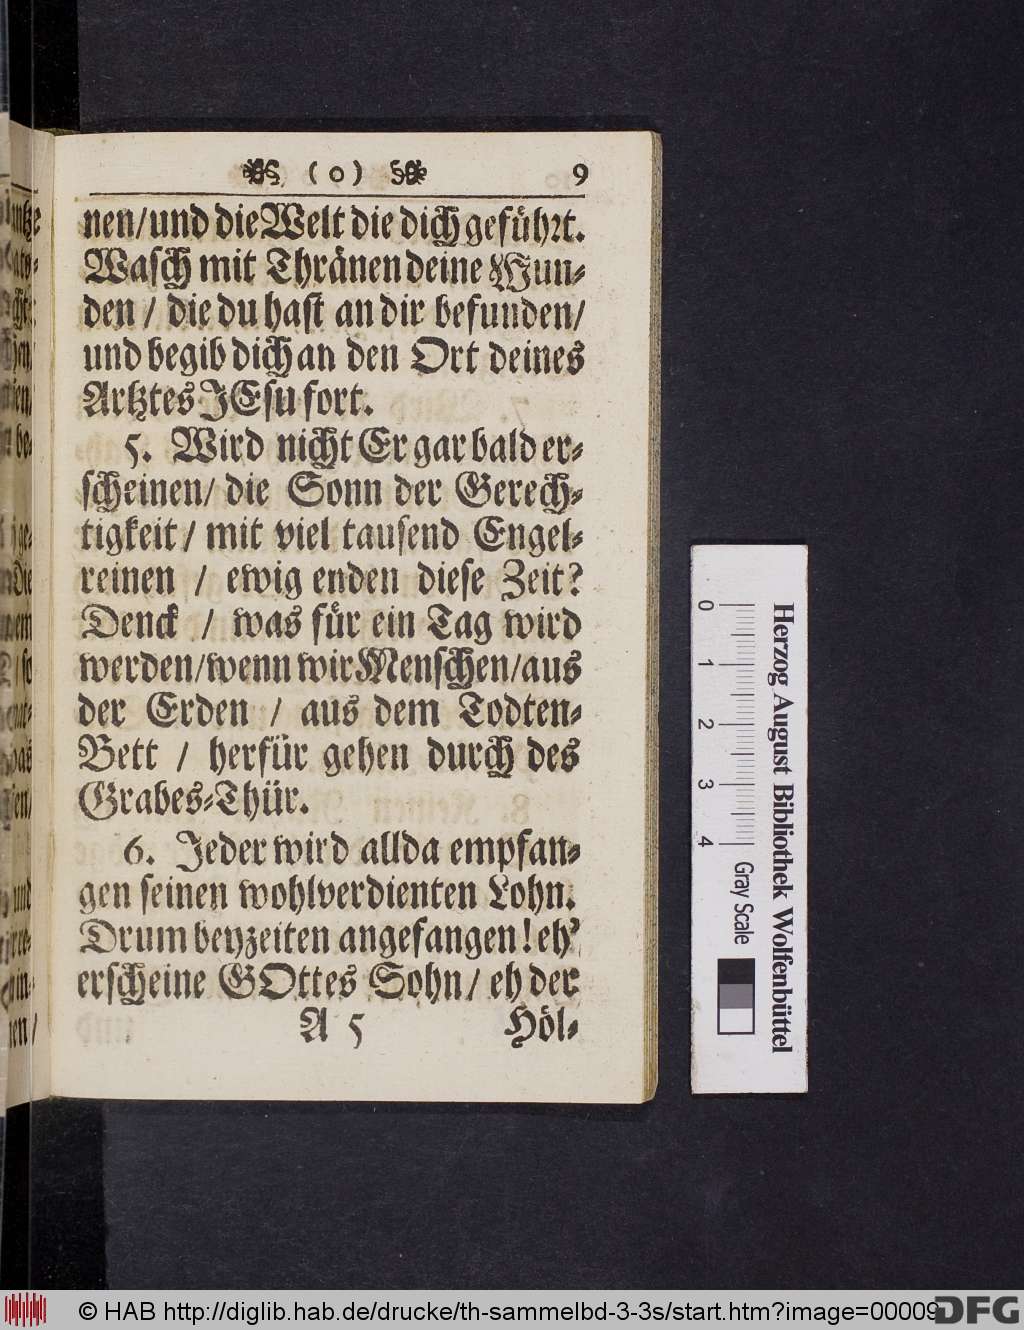 ( o ) 9
nen/und die Welt die dich geführt.
Wasch mit Thränen deine Wun-
den / die du hast an dir befunden/
und begib dich an den Ort deines
Artztes JEsu fort.
5. Wird nicht Er gar bald er-
scheinen/ die Sonn der Gerech-
tigkeit / mit viel tausend Engel-
reinen / ewig enden diese Zeit?
Denck / was für ein Tag wird
werden/wenn wir Menschen/aus
der Erden / aus dem Todten-
Bett / herfür gehen durch des
Grabes-Thür.
6. Jeder wird allda empfan-
gen seinen wohlverdienten Lohn.
Drum beyzeiten angefangen! eh'
erscheine GOttes Sohn/ eh der
A 5 Höl-
Herzog August Bibliothek Wolfenbüttel
0 1 2 3 4 Gray Scale
© HAB http://diglib.hab.de/drucke/th-sammelbd-3-3s/start.htm?image=00009
DFG